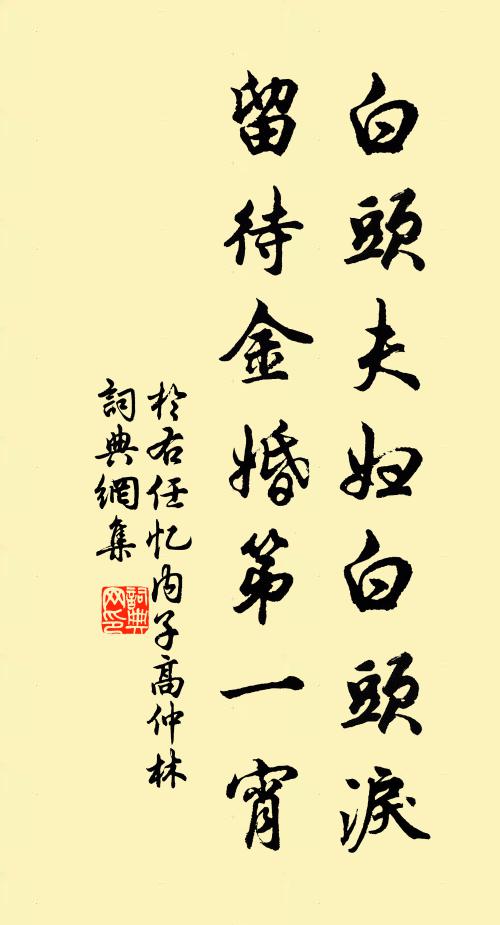 白頭夫妇白頭淚
留待金婚第一宵
於右任忆内子高仲林
詞典網集
詞典网印